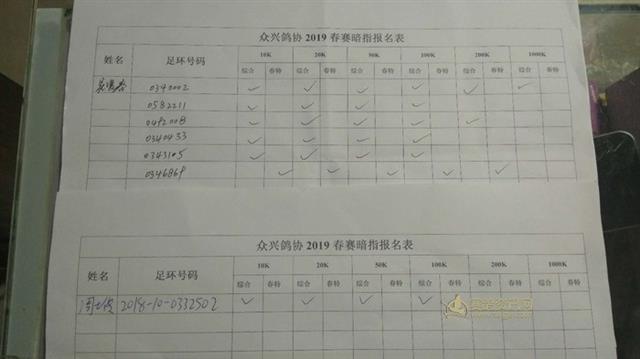 众兴鸽协 2019 春赛暗指报名表
姓名 足环号码 10K 20K 50K 100K 200K 1000K
综合 春特 综合 春特 综合 春特 综合 春特 综合 春特 综合 春特
0340002 ✓ ✓ ✓ ✓ ✓ ✓
0582211 ✓ ✓ ✓ ✓
0492008 ✓ ✓ ✓ ✓ ✓
0340433 ✓ ✓ ✓ ✓
0343105 ✓ ✓ ✓ ✓
✓ ✓ ✓ ✓ ✓
众兴鸽协 2019 春赛暗指报名表
姓名 足环号码 10K 20K 50K 100K 200K 1000K
综合 春特 综合 春特 综合 春特 综合 春特 综合 春特 综合 春特
2018-10-0332502 ✓ ✓ ✓ ✓